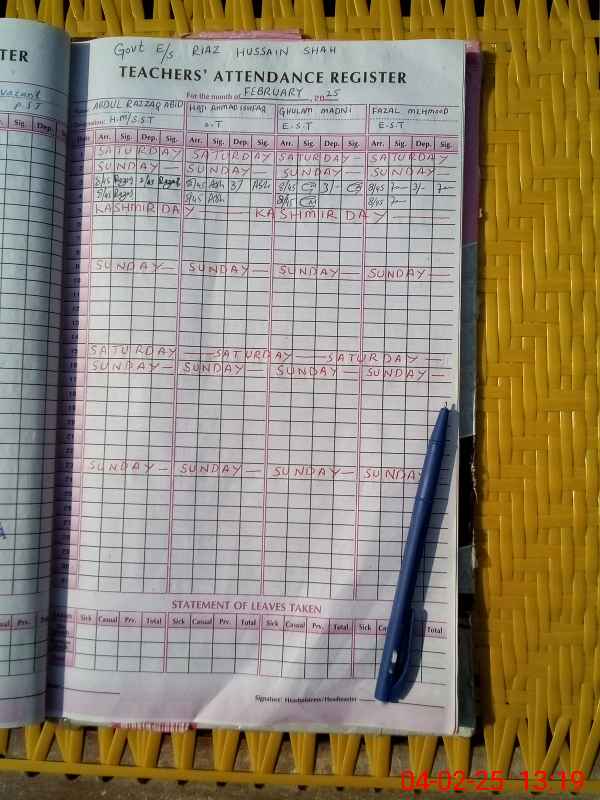 TER
vacant
P.S.T
Sig. Dep. Sig.
Govt E/s RIAZ HUSSAIN SHAH
TEACHERS' ATTENDANCE REGISTER
For the month of FEBRUARY, 2025
ABDUL RAZZAQ ABID HAJI AHMAD ISHFAQ GHULAM MADNI FAZAL MEHMOOD
H.M/S.S.T O.T E.S.T E.S.T
Arr. Sig. Dep. Sig. Arr. Sig. Dep. Sig. Arr. Sig. Dep. Sig. Arr. Sig. Dep. Sig.
SATURDAY SATURDAY SATURDAY — SATURDAY
SUNDAY — SUNDAY — SUNDAY — SUNDAY —
8/45 8/45 3/ 8/45 3/- 8/45 3/-
8/45 8/45 8/45 8/45
KASHMIR DAY — KASHMIR DAY —
SUNDAY — SUNDAY — SUNDAY — SUNDAY —
15 SATURDAY — SATURDAY — SATURDAY —
16 SUNDAY — SUNDAY — SUNDAY — SUNDAY —
23 SUNDAY — SUNDAY — SUNDAY — SUNDA
STATEMENT OF LEAVES TAKEN
Sick Casual Prv. Total Sick Casual Prv. Total Sick Prv. Total Sick Total
Signature Headmistress/Headmaster
04-02-25 13:19